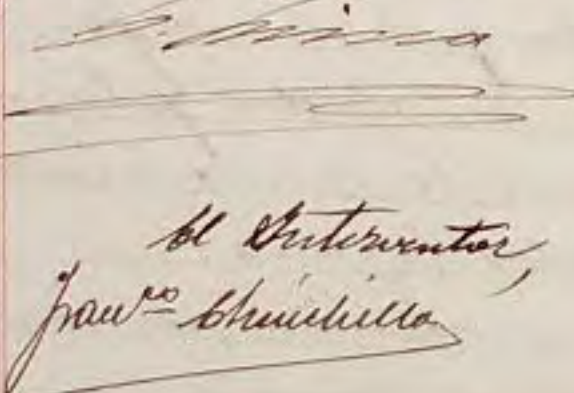 El Interventor,
Fran.co Chinchilla